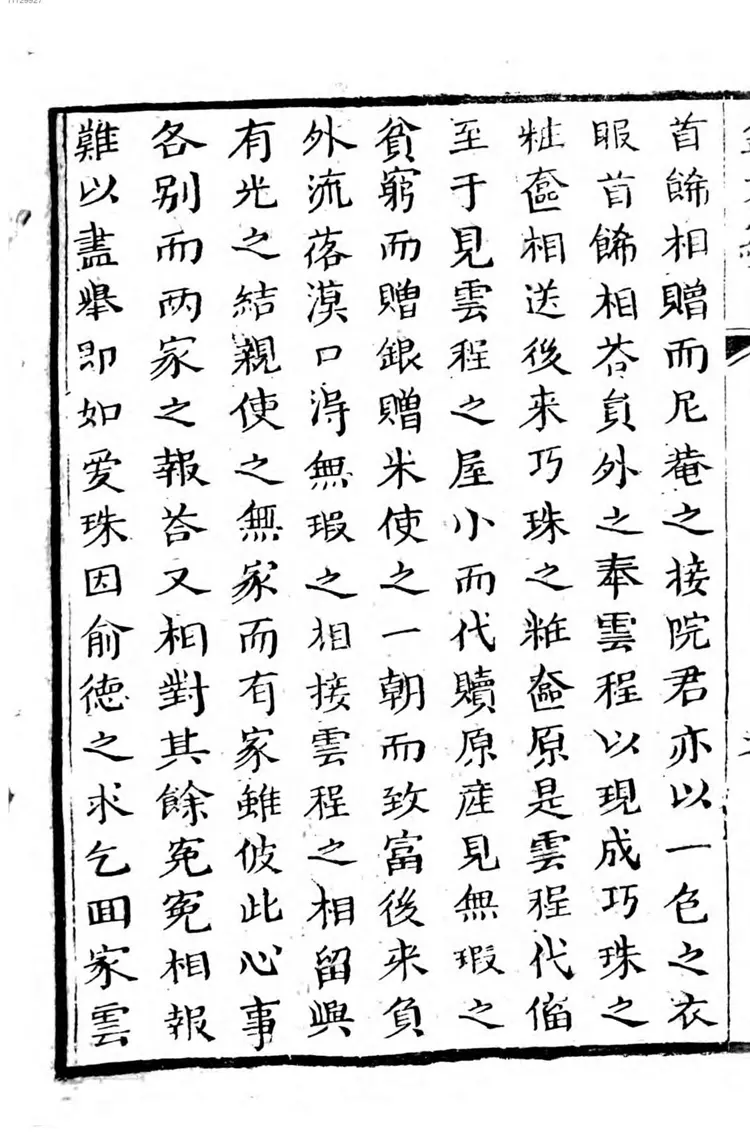 首餙相贈而尼菴之接院君亦以一色之衣
服首餙相荅員外之奉雲程以現成巧珠之
粧奩相送後來巧珠之粧奩原是雲程代偹
至于見雲程之屋小而代贖原産見無瑕之
貧窮而贈銀贈米使之一朝而致富後來負
外流落漠口淂無瑕之相接雲程之相留與
有光之結親使之無家而有家雖彼此心事
各别而兩家之報荅又相對其餘寃寃相報
難以盡舉即如爱珠因俞徳之求乞囬家雲